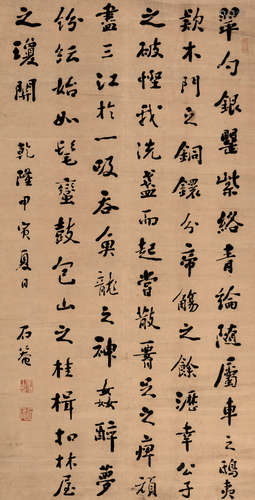 翠勺銀罌紫絡青綸隨屬車之鴟夷
款木門之銅鐶分帝觴之餘瀝幸公子
之破慳我洗盞而起嘗散腰足之痺頑
盡三江於一吸吞魚龍之神姦醉夢
紛紜始如髦蠻鼓包山之桂楫扣林屋
之瓊關 乾隆甲寅夏日 石菴